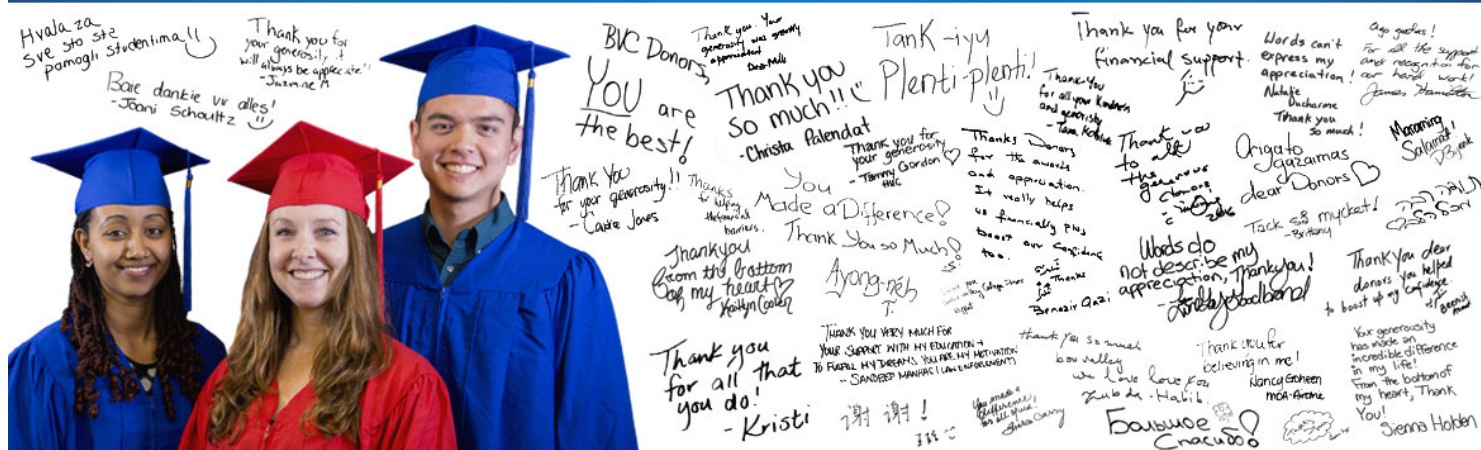 Hvala za
sve sto ste
pomogli studentima!!
Thank you for
your generosity it
will always be
- Jazmine M
Baie dankie vir alles!
- Joani Schoultz
BVC Donors,
YOU are
the best!
Thank you. Your
generosity was greatly
appreciated
Thank you
so much!!!
- Christa Palendat
TanK-iyu
Plenti-plenti!
Thank you for your
financial support.
Words can't
express my
appreciation!
Natalie
Ducharme
Thank you
so much!
For all the support
and recognition for
our hard work!
James Hamilton
Thank You
for all your Kindness
and generosity
- Tara
Thank you for
your generosity
- Tammy Gordon
HWC
Thanks Donors
for the awards
and appriciation.
It really helps
us financially plus
boost our confidence
too.
Thanks
Benazir Qazi
Thank you
to all
the generous
donors
Origato
gazaimas
dear Donors
Maraming
Salamat!
Thank You
for your generosity!!
- Carrie Jones
Thanks
for helping
the financial
barriers.
You
Made a Difference!
Thank You so Much!
Tack så mycket!
- Brittany
תודה רבה
Thankyou
from the bottom
of my heart
Kaitlyn Cooten
Ayong-néh
T.
Words do
not describe my
appreciation, Thankyou!
Thank you dear
donors you helped
to boost up my confidence.
Thank you
for all that
you do!
- Kristi
THANK YOU VERY MUCH FOR
YOUR SUPPORT WITH MY EDUCATION +
TO FULFILL MY DREAMS. YOU ARE MY MOTIVATION
- SANDEEP MANHAS (LAW ENFORCEMENT)
thank you so much
bow valley
we love love you
Zubda - Habib.
Thank you for
believing in me!
Nancy Goheen
MOA-Airdrie
Your generousity
has made an
incredible difference
in my life!
From the bottom of
my heart, Thank
You!
Sienna Holden
谢谢!
You made a
difference,
for all of us.
Большое
Спасибо!